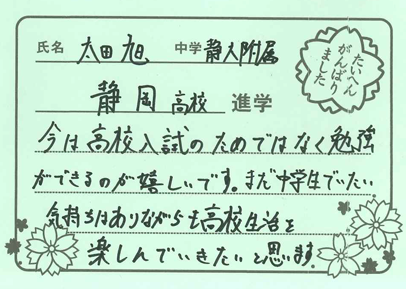 氏名 太田 旭 中学 静大附属
たいへん
がんばり
ました
静岡 高校 進学
今は高校入試のためではなく勉強
ができるのが嬉しいです。まだ中学生でいたい
気持ちはありながらも高校生活を
楽しんでいきたいと思います。